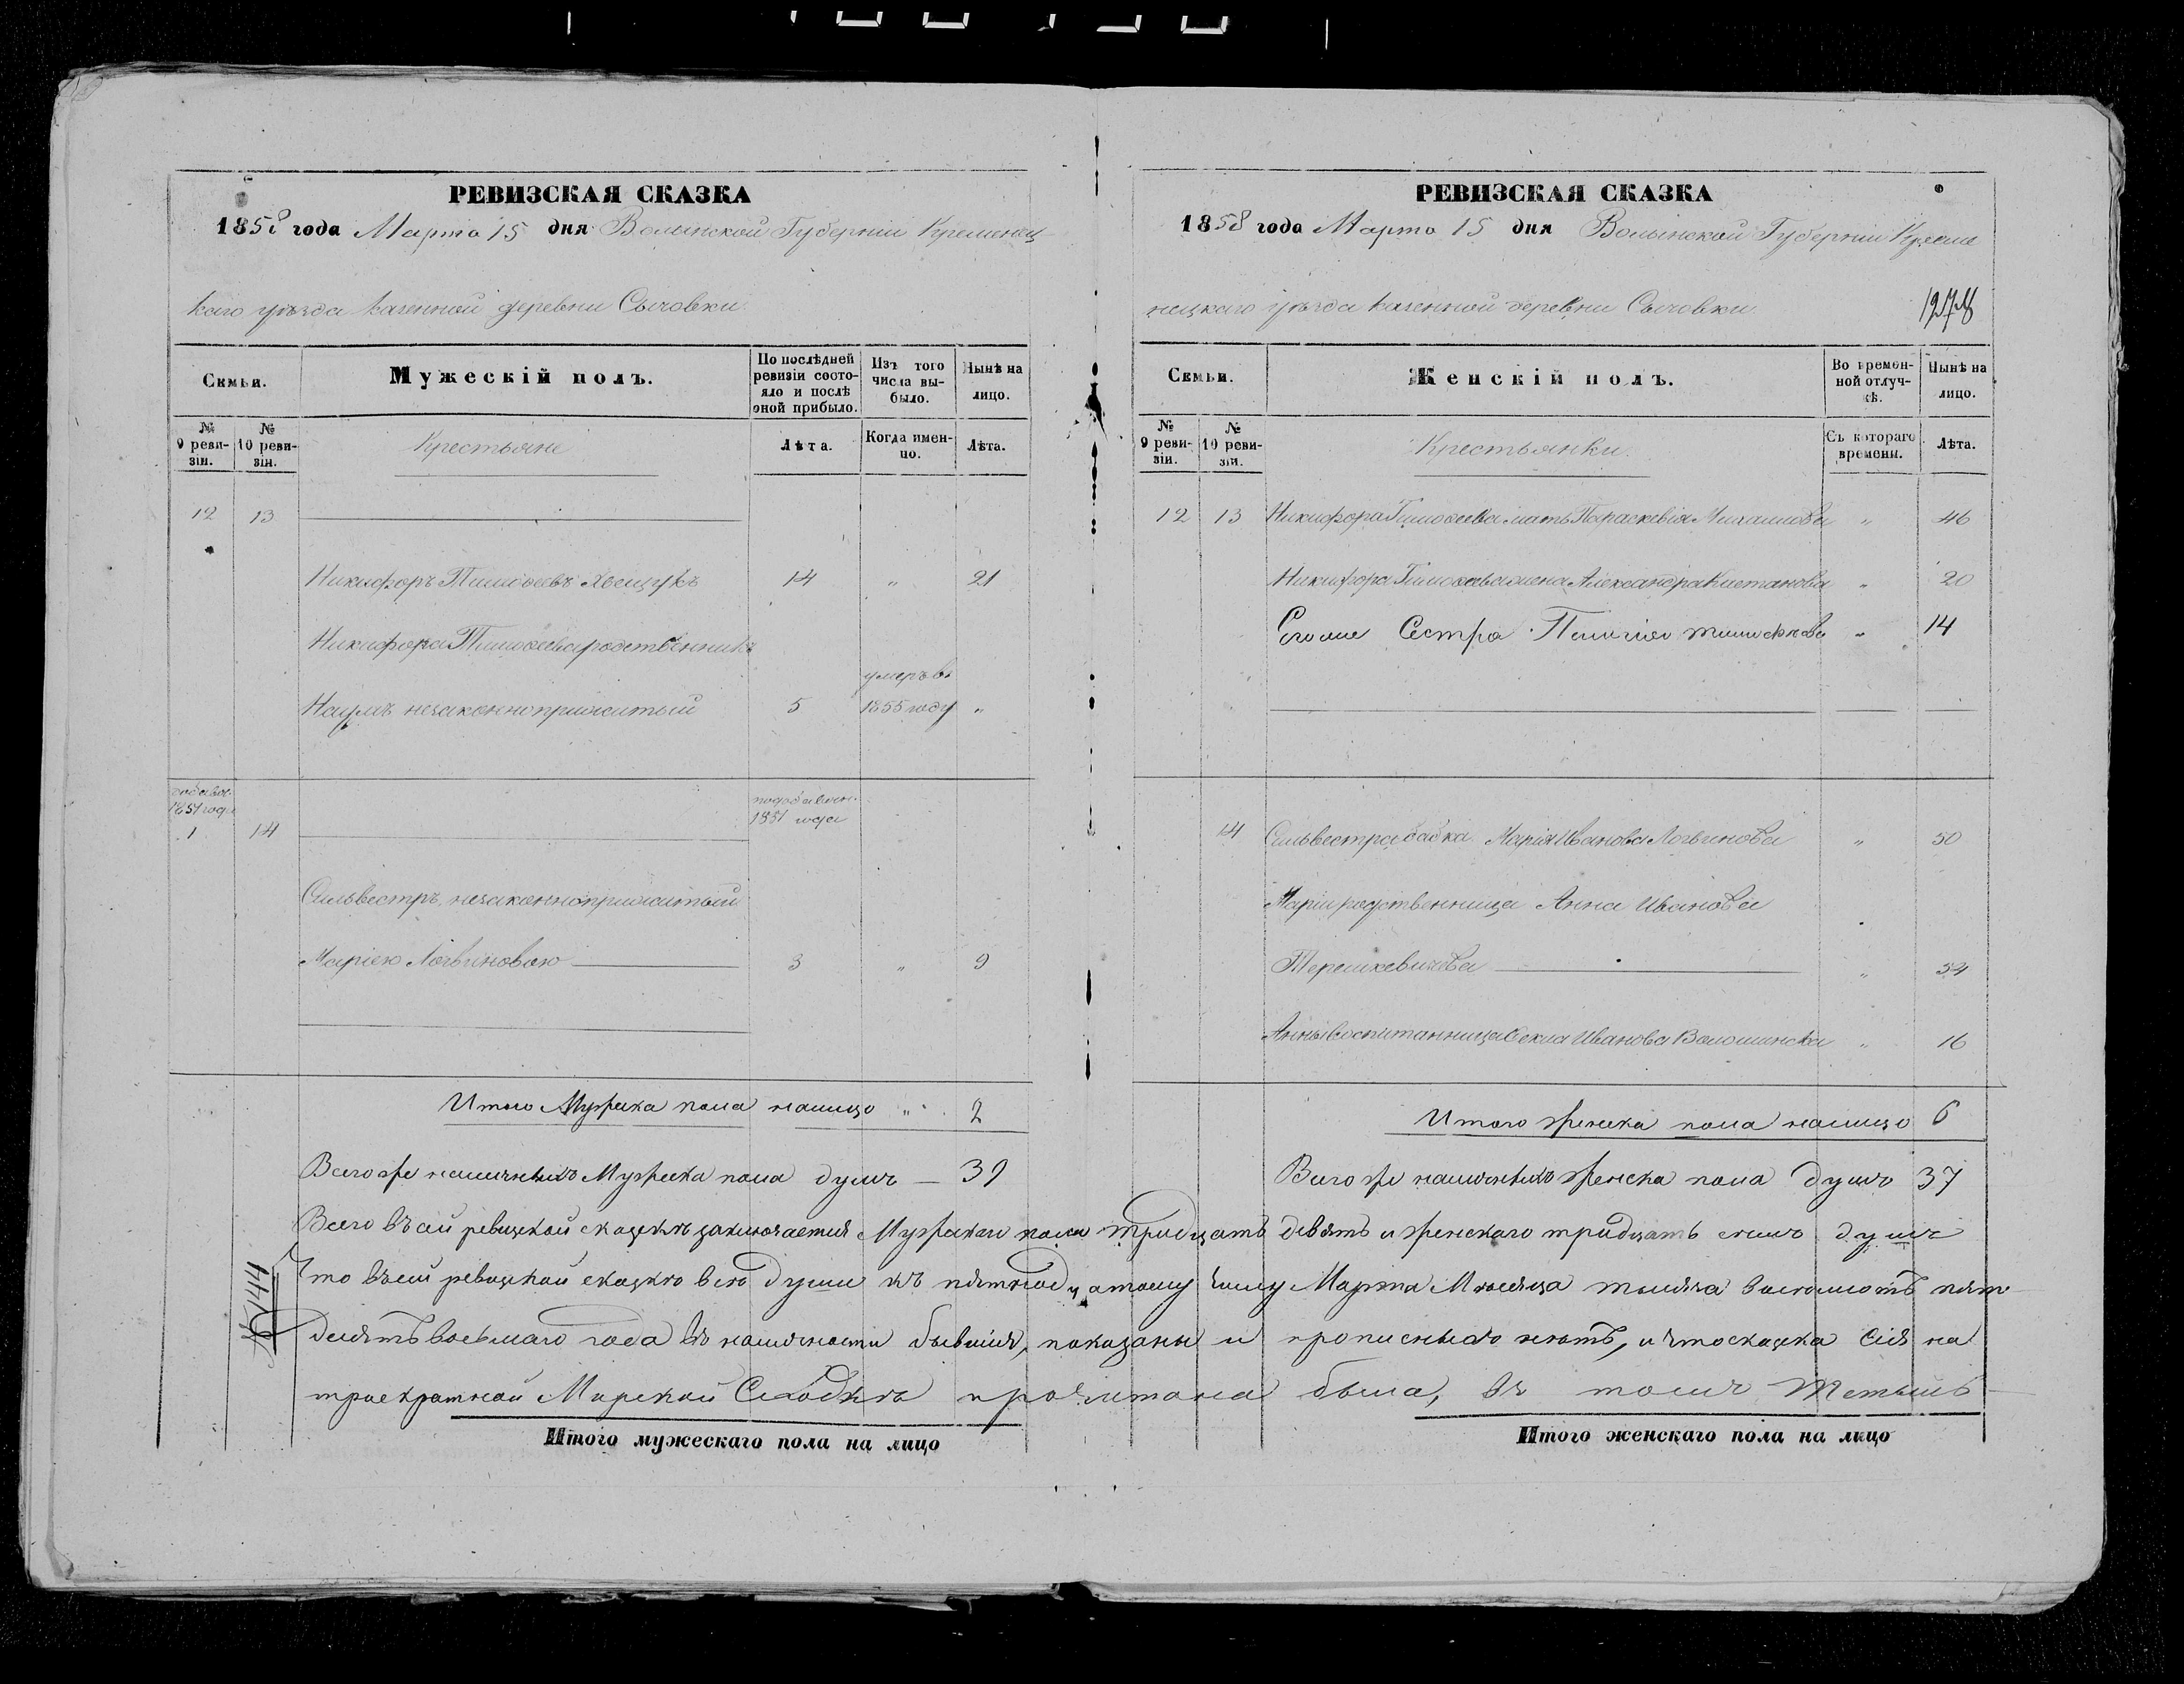 РЕВИЗСКАЯ СКАЗКА
1858 года Марта 15 дня Волынской Губерніи Кременец
каго уѣзда казенной деревни Сычовки
Семьи.
Мужескій полъ.
По послѣдней ревизіи состояло и послѣ оной прибыло.
Изъ того числа выбыло.
Нынѣ на лицо.
№ 9 ревизіи.
№ 10 ревизіи.
Крестьяне
Лѣта.
Когда именно.
Лѣта.
12 13
Никифоръ Тимофеевъ 14 " 21
Никифора Тимофеева родственникъ
умеръ въ
Наумъ незаконноприжитый 5 1855 году "
1851 года
1851 года
1 14
Сильвестръ незаконноприжитый
Маріею Логвиновою 3 " 9
Итого Мужеска пола налицо " 2
Всего же наличныхъ Мужеска пола душъ — 39
РЕВИЗСКАЯ СКАЗКА
1858 года Марта 15 дня Волынской Губерніи Креме
нецкаго уѣзда казенной деревни Сычовки
Семьи.
Женскій полъ.
Во временной отлучкѣ.
Нынѣ на лицо.
№ 9 ревизіи.
№ 10 ревизіи.
Крестьянки.
Съ котораго времени.
Лѣта.
12 13 Никифора Тимофеева мать Параскевія Михаилова " 46
Никифора Тимофеева жена Александра " 20
Его же Сестра Тимофѣева " 14
14 Сильвестра бабка Марія Иванова Логвинова " 50
Маріи родственница Анна Иванова
Терешкевичева " 54
Анны воспитанница Фекла Иванова " 16
Итого женска пола налицо 6
Всего же наличныхъ женска пола душъ 37
Всего въ сей ревизской сказкѣ заключается Мужскаго пола тридцать девять и женскаго тридцать семь душъ
Что въ сей ревизской сказкѣ всѣ души къ пятнадцатому числу Марта Мѣсяца тысяча восемсотъ пять
десятъ восьмаго года въ наличности бывшія, показаны и прописныхъ нѣтъ, и что сказка сія на
троекратной Мирской Сходкѣ прочитана была, въ томъ
Итого мужескаго пола на лицо
Итого женскаго пола на лицо